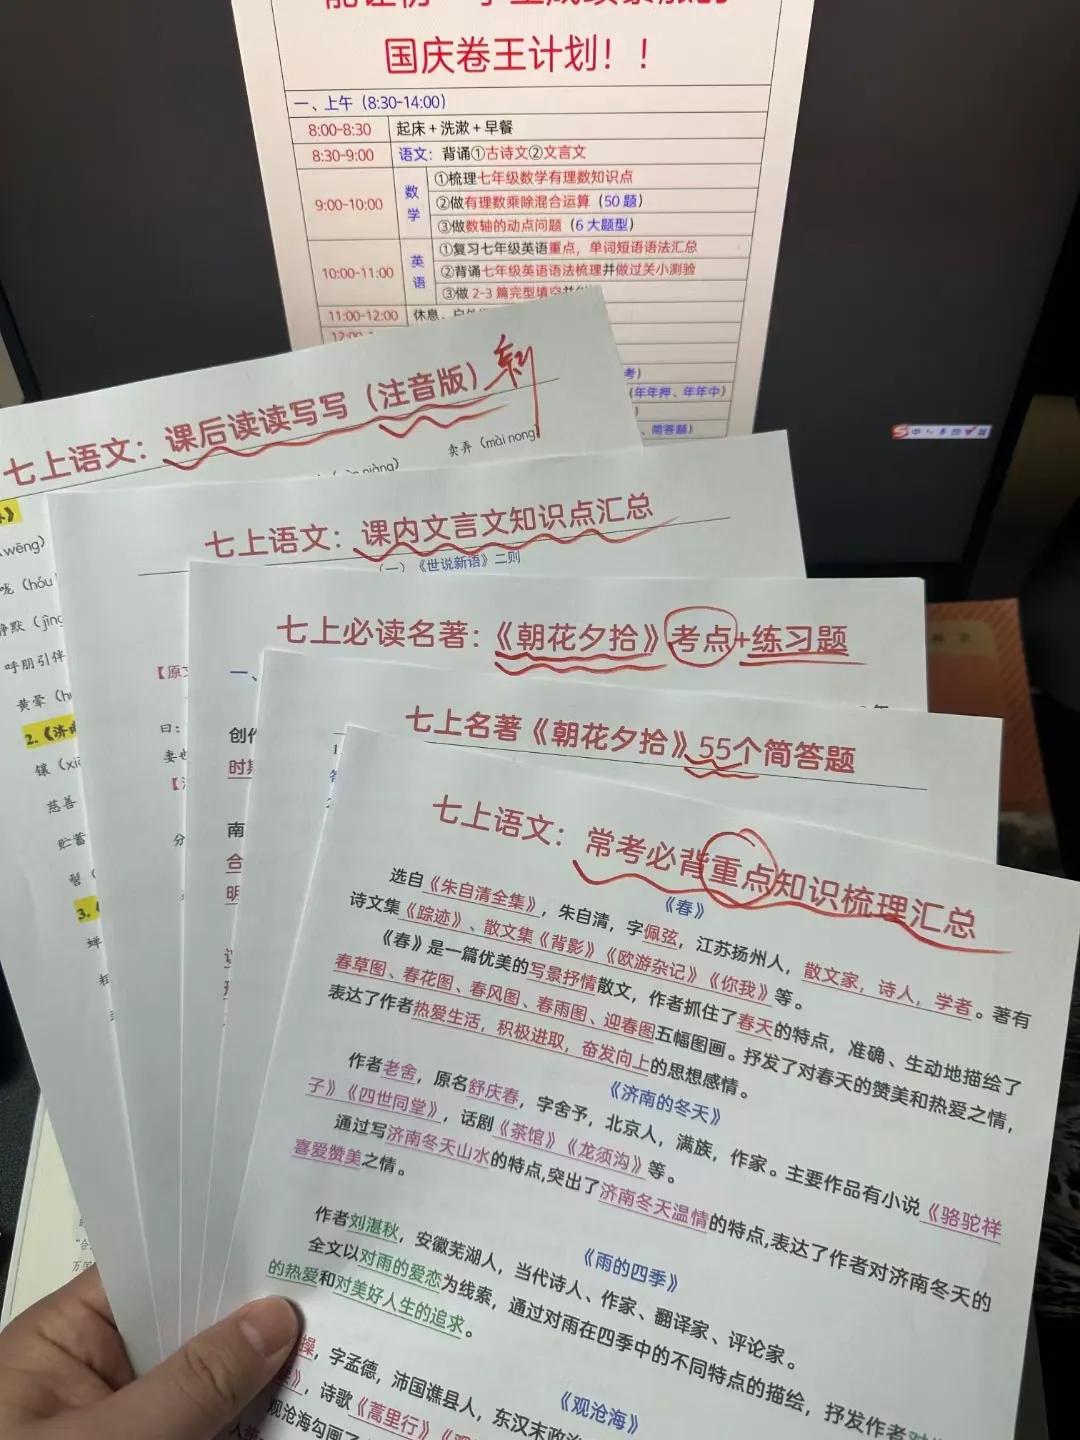 国庆卷王计划！！
一、上午（8:30-14:00）
8:00-8:30 起床+洗漱+早餐
8:30-9:00 语文：背诵①古诗文②文言文
9:00-10:00 数学 ①梳理七年级数学有理数知识点
②做有理数乘除混合运算（50题）
③做数轴的动点问题（6大题型）
10:00-11:00 英语 ①复习七年级英语重点，单词短语语法汇总
②背诵七年级英语语法梳理并做过关小测验
③做 2-3 篇完型填空
11:00-12:00 休息、
考）
（年年押、年年中）
简答题）
七上语文：课后读读写写（注音版）
卖弄（mài nong）
wēng）
（hóu
静默（jìng
呼朋引伴
黄晕（
2.《济南
镶（xiā
慈善
贮蓄
髻（
3.
蝉
七上语文：课内文言文知识点汇总
（一）《世说新语》二则
【原文
曰：
分
七上必读名著：《朝花夕拾》考点+练习题
一、
创作
时期
南
合
明
七上名著《朝花夕拾》55个简答题
七上语文：常考必背重点知识梳理汇总
《春》
选自《朱自清全集》，朱自清，字佩弦，江苏扬州人，散文家，诗人，学者。著有
诗文集《踪迹》、散文集《背影》《欧游杂记》《你我》等。
《春》是一篇优美的写景抒情散文，作者抓住了春天的特点，准确、生动地描绘了
春草图、春花图、春风图、春雨图、迎春图五幅图画。抒发了对春天的赞美和热爱之情，
表达了作者热爱生活，积极进取，奋发向上的思想感情。
《济南的冬天》
作者老舍，原名舒庆春，字舍予，北京人，满族，作家。主要作品有小说《骆驼祥
子》《四世同堂》，话剧《茶馆》《龙须沟》等。
通过写济南冬天山水的特点,突出了济南冬天温情的特点,表达了作者对济南冬天的
喜爱赞美之情。
《雨的四季》
作者刘湛秋，安徽芜湖人，当代诗人、作家、翻译家、评论家。
全文以对雨的爱恋为线索，通过对雨在四季中的不同特点的描绘，抒发作者对
的热爱和对美好人生的追求。
《观沧海》
操，字孟德，沛国谯县人，东汉末政治
，诗歌《蒿里行》《观
观沧海勾画了